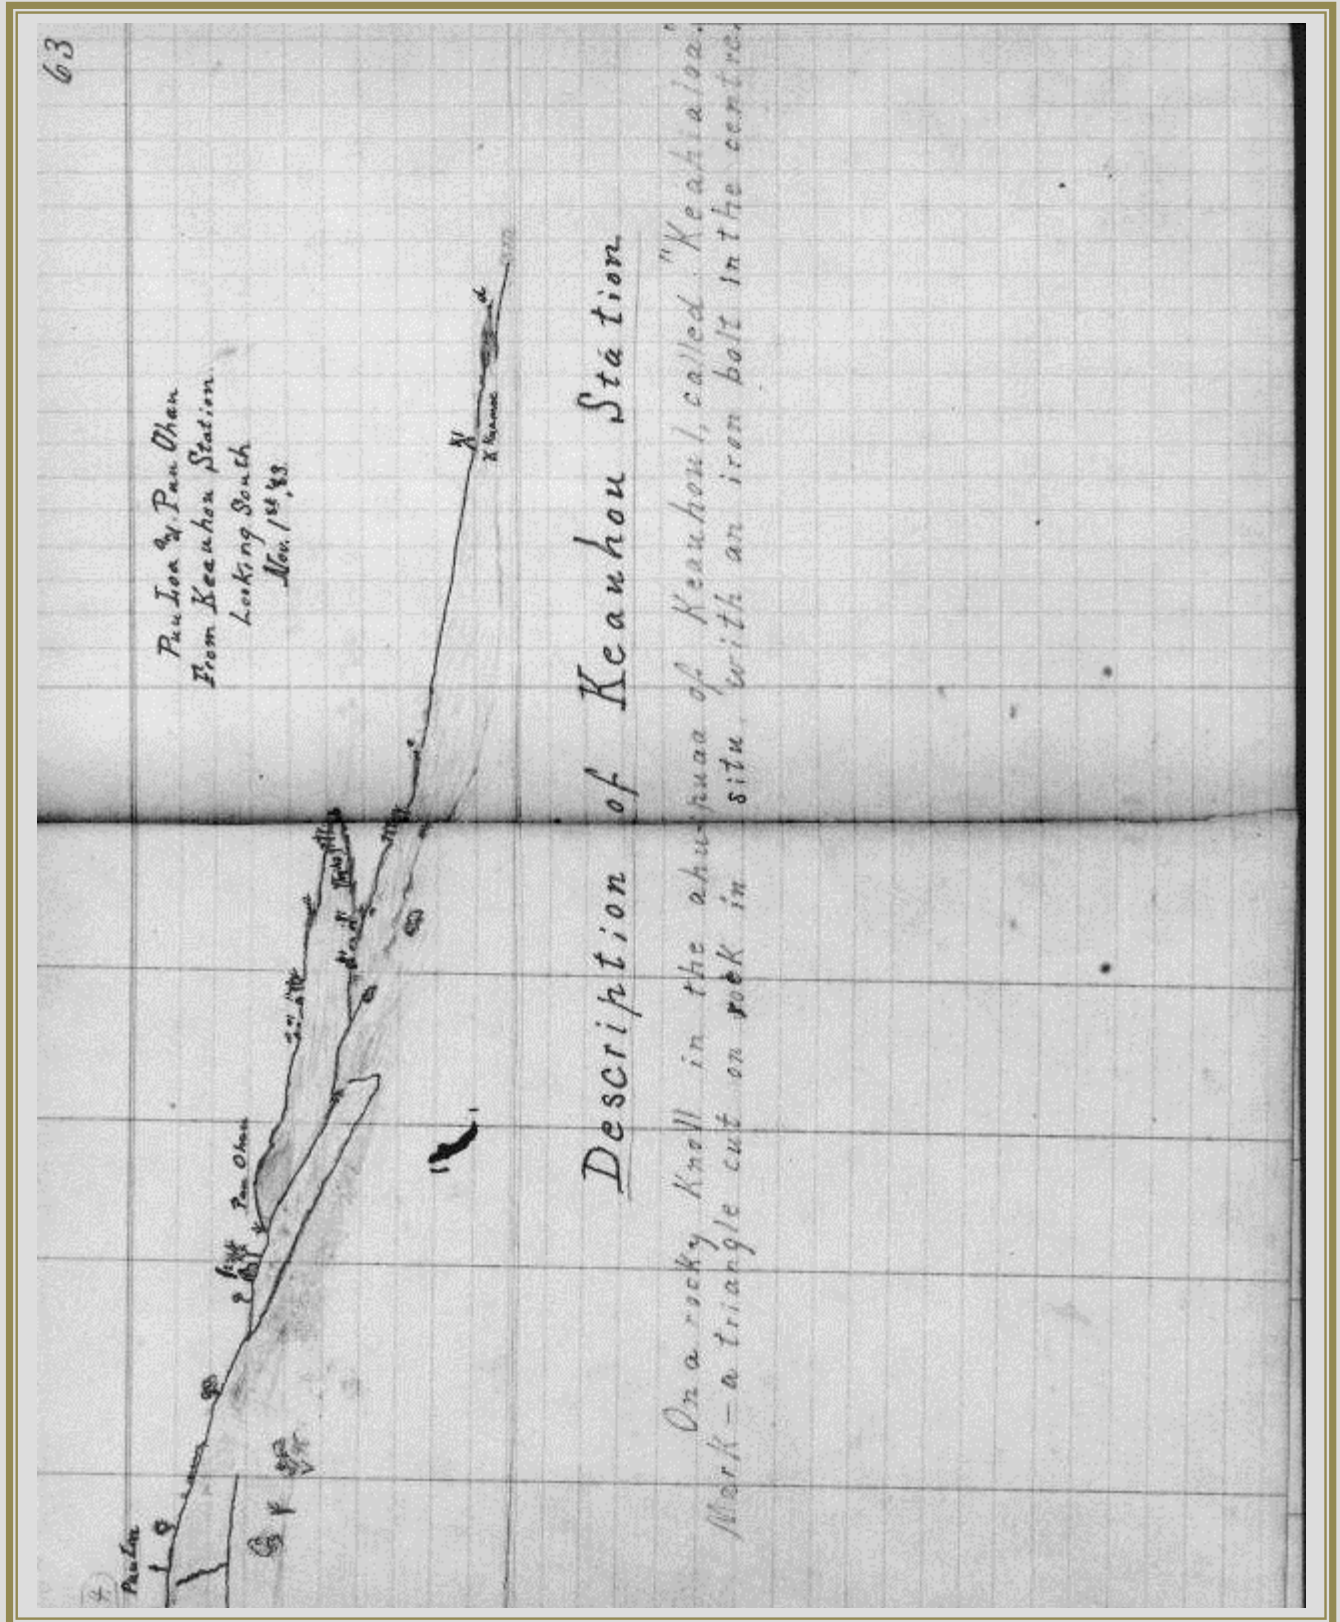 63
Puu Loa & Puu Ohau
From Keauhou Station
Looking South
Nov. 1st '83.
Puu Loa
Puu Ohau
Description of Keauhou Station
On a rocky Knoll in the ahupuaa of Keauhou 1, called "Keahialoa."
Mark — a triangle cut on rock in situ, with an iron bolt in the centre.